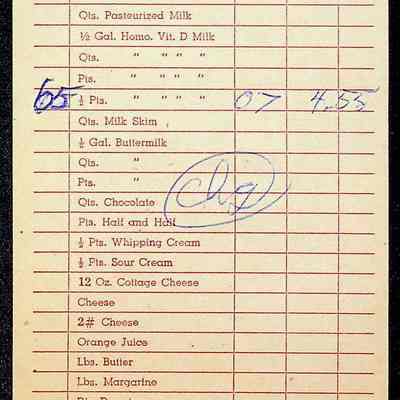 Qts. Pasteurized Milk
½ Gal. Homo. Vit. D Milk
Qts. " " " "
Pts. " " " "
65 ½ Pts. " " " " 07 4.55
Qts. Milk Skim
½ Gal. Buttermilk
Qts. "
Pts. "
chg
Qts. Chocolate
Pts. Half and Half
½ Pts. Whipping Cream
½ Pts. Sour Cream
12 Oz. Cottage Cheese
Cheese
2# Cheese
Orange Juice
Lbs. Butter
Lbs. Margarine